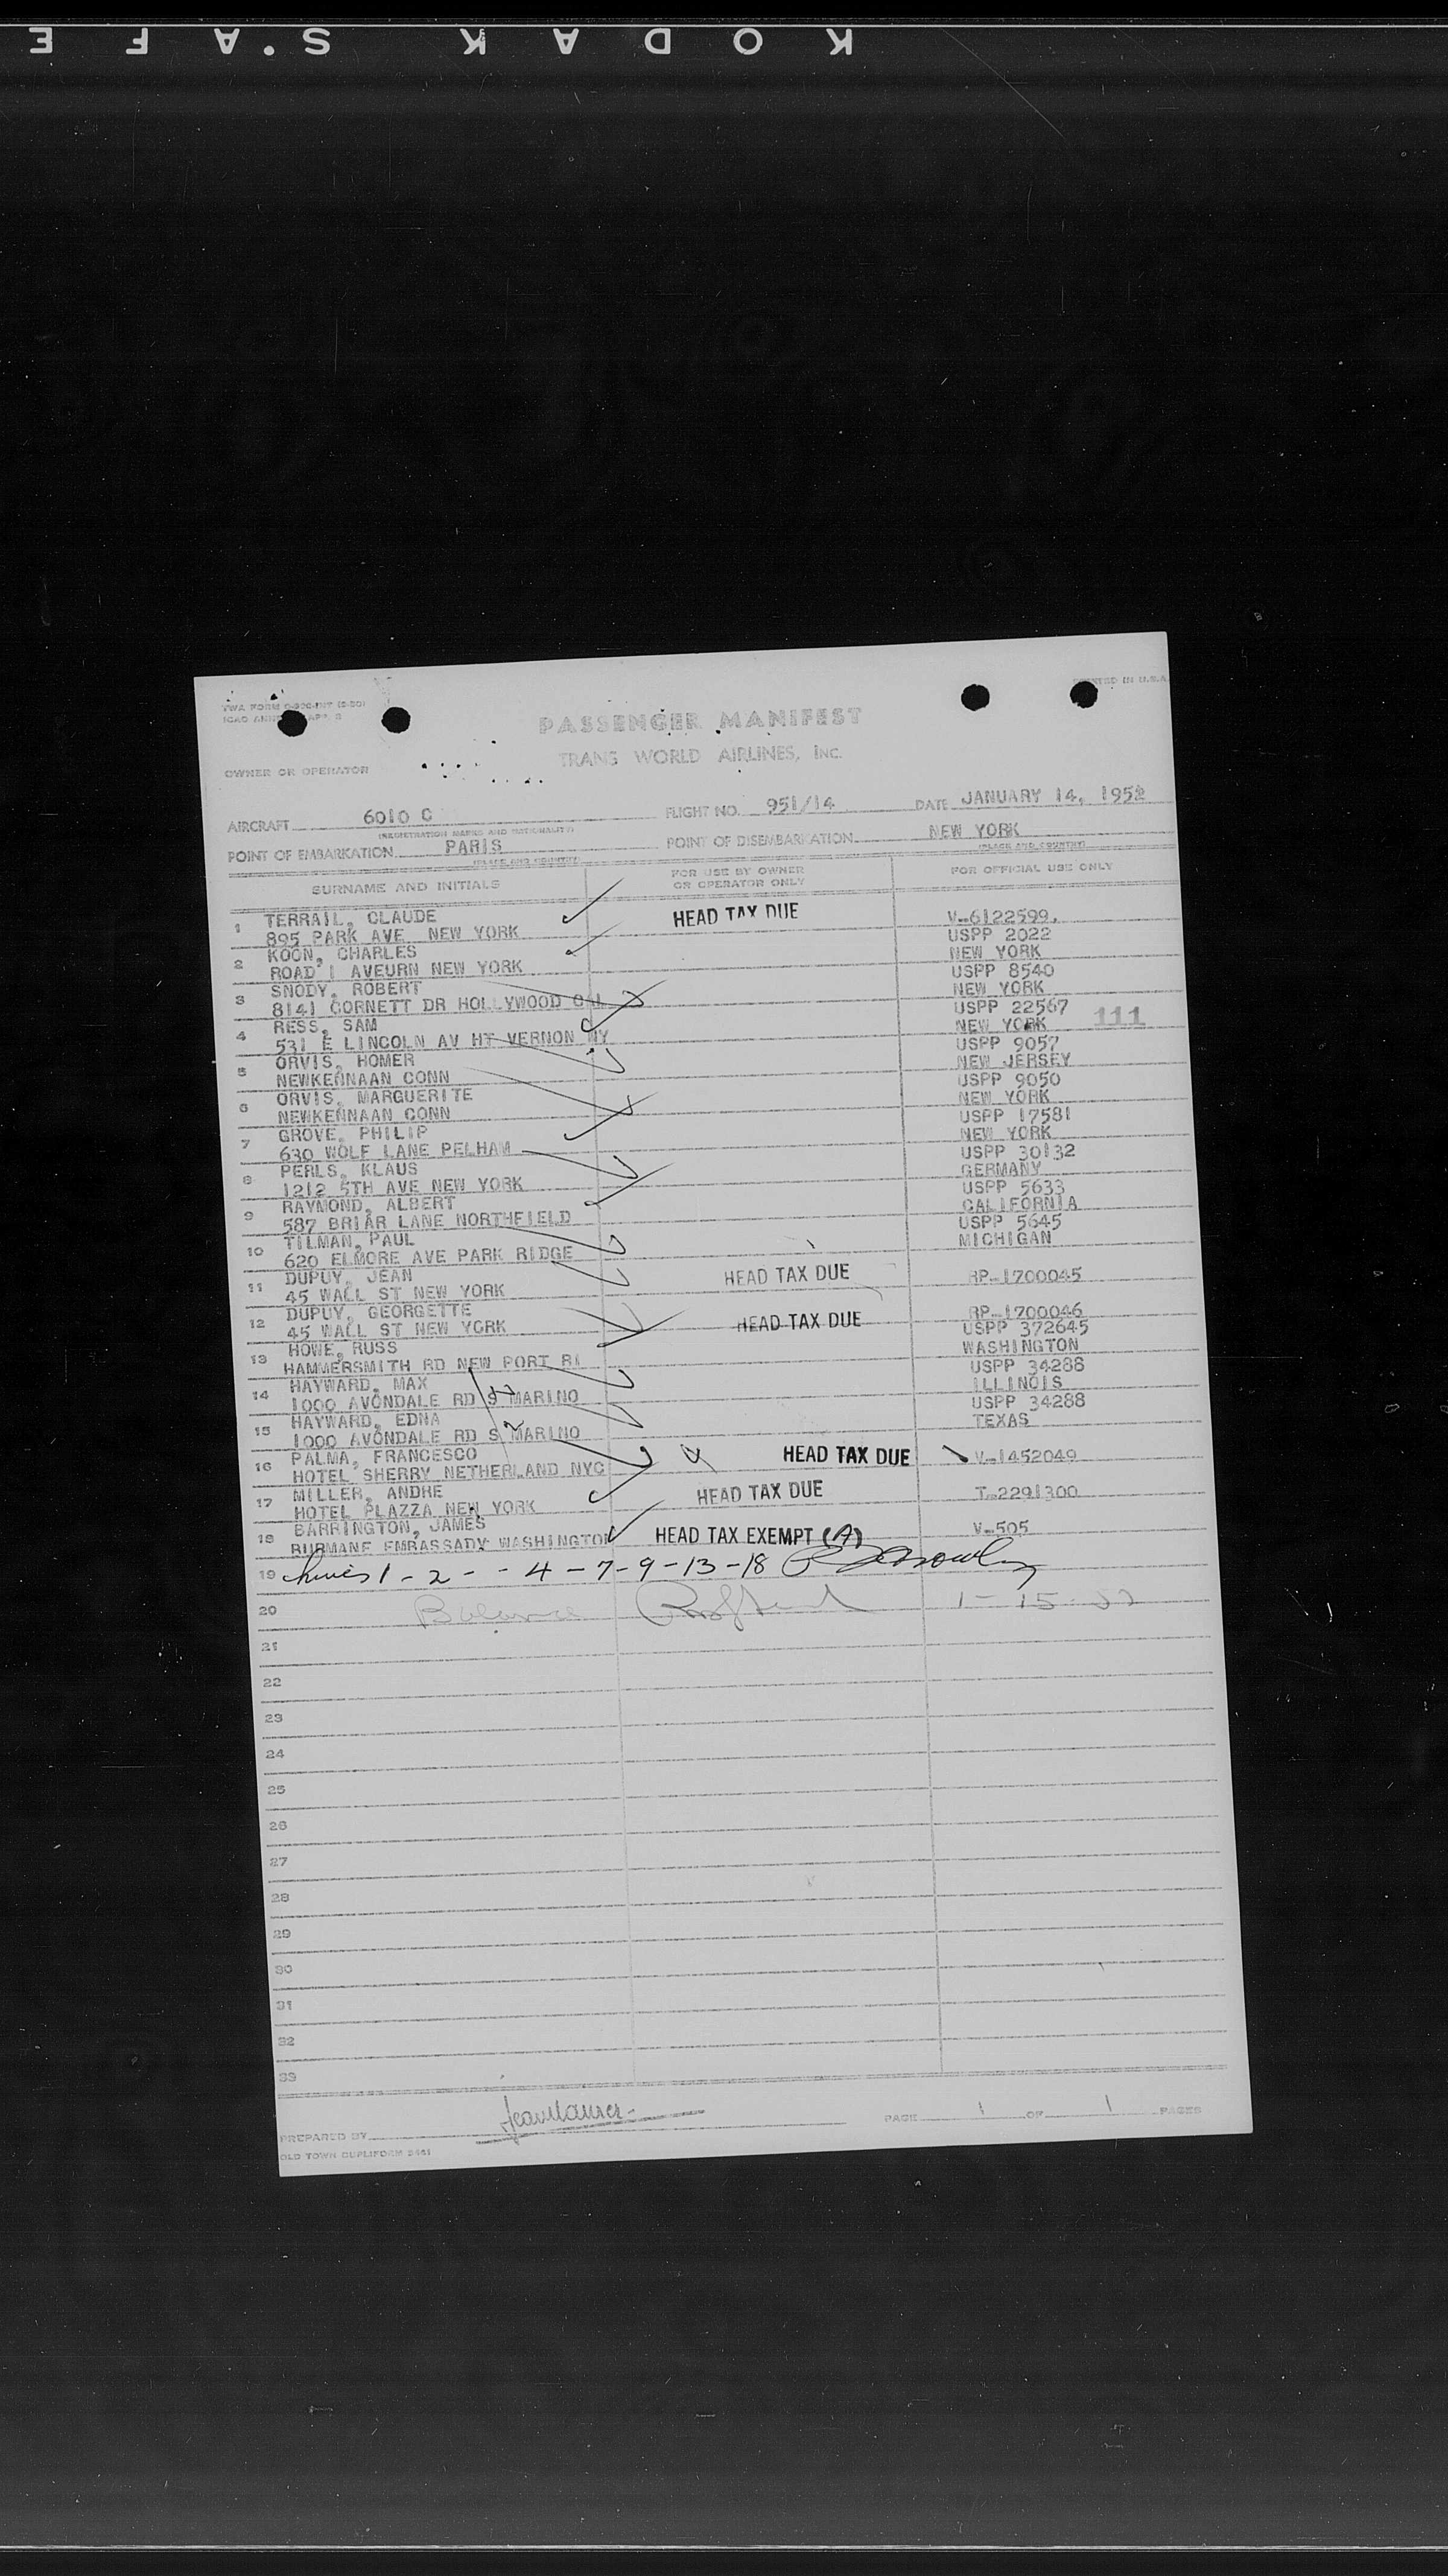 KODAK S.A.F.E
TWA FORM
ICAO ANNEX APP. 
PRINTED IN U.S.A.
PASSENGER MANIFEST
TRANS WORLD AIRLINES, INC.
OWNER OR OPERATOR
AIRCRAFT 6010 C FLIGHT NO. 951/14 DATE JANUARY 14, 1952
(REGISTRATION MARKS AND NATIONALITY)
POINT OF EMBARKATION PARIS POINT OF DISEMBARKATION NEW YORK
(PLACE AND COUNTRY) (PLACE AND COUNTRY)
SURNAME AND INITIALS FOR USE BY OWNER OR OPERATOR ONLY FOR OFFICIAL USE ONLY
1 TERRAIL, CLAUDE HEAD TAX DUE V-6122599.
895 PARK AVE NEW YORK USPP 2022
2 KOON, CHARLES NEW YORK
ROAD 1 AVEURN NEW YORK USPP 8540
3 SNODY, ROBERT NEW YORK
8141 CORNETT DR HOLLYWOOD CAL USPP 22567
4 RESS, SAM NEW YORK 111
531 E LINCOLN AV HT VERNON NY USPP 9057
5 ORVIS, HOMER NEW JERSEY
NEWKENNAAN CONN USPP 9050
6 ORVIS, MARGUERITE NEW YORK
NEWKENNAAN CONN USPP 17581
7 GROVE, PHILIP NEW YORK
630 WOLF LANE PELHAM USPP 30132
8 PERLS, KLAUS GERMANY
1212 5TH AVE NEW YORK USPP 5633
9 RAYMOND, ALBERT CALIFORNIA
587 BRIAR LANE NORTHFIELD USPP 5645
10 TILMAN, PAUL MICHIGAN
620 ELMORE AVE PARK RIDGE
11 DUPUY, JEAN HEAD TAX DUE RP-1700045
45 WALL ST NEW YORK
12 DUPUY, GEORGETTE HEAD TAX DUE RP-1700046
45 WALL ST NEW YORK USPP 372645
13 HOWE, RUSS WASHINGTON
HAMMERSMITH RD NEW PORT RI USPP 34288
14 HAYWARD, MAX ILLINOIS
1000 AVONDALE RD S MARINO USPP 34288
15 HAYWARD, EDNA TEXAS
1000 AVONDALE RD S MARINO
16 PALMA, FRANCESCO HEAD TAX DUE V-1452049
HOTEL SHERRY NETHERLAND NYC
17 MILLER, ANDRE HEAD TAX DUE T-2291300
HOTEL PLAZZA NEW YORK
18 BARRINGTON, JAMES HEAD TAX EXEMPT (A) V-505
BURMANE EMBASSADY WASHINGTON
19 Lines 1 - 2 - - 4 - 7 - 9 - 13 - 18
20 Balance 1-15-52
21
22
23
24
25
26
27
28
29
30
31
32
33
PREPARED BY PAGE 1 OF 1 PAGES
OLD TOWN DUPLIFORM